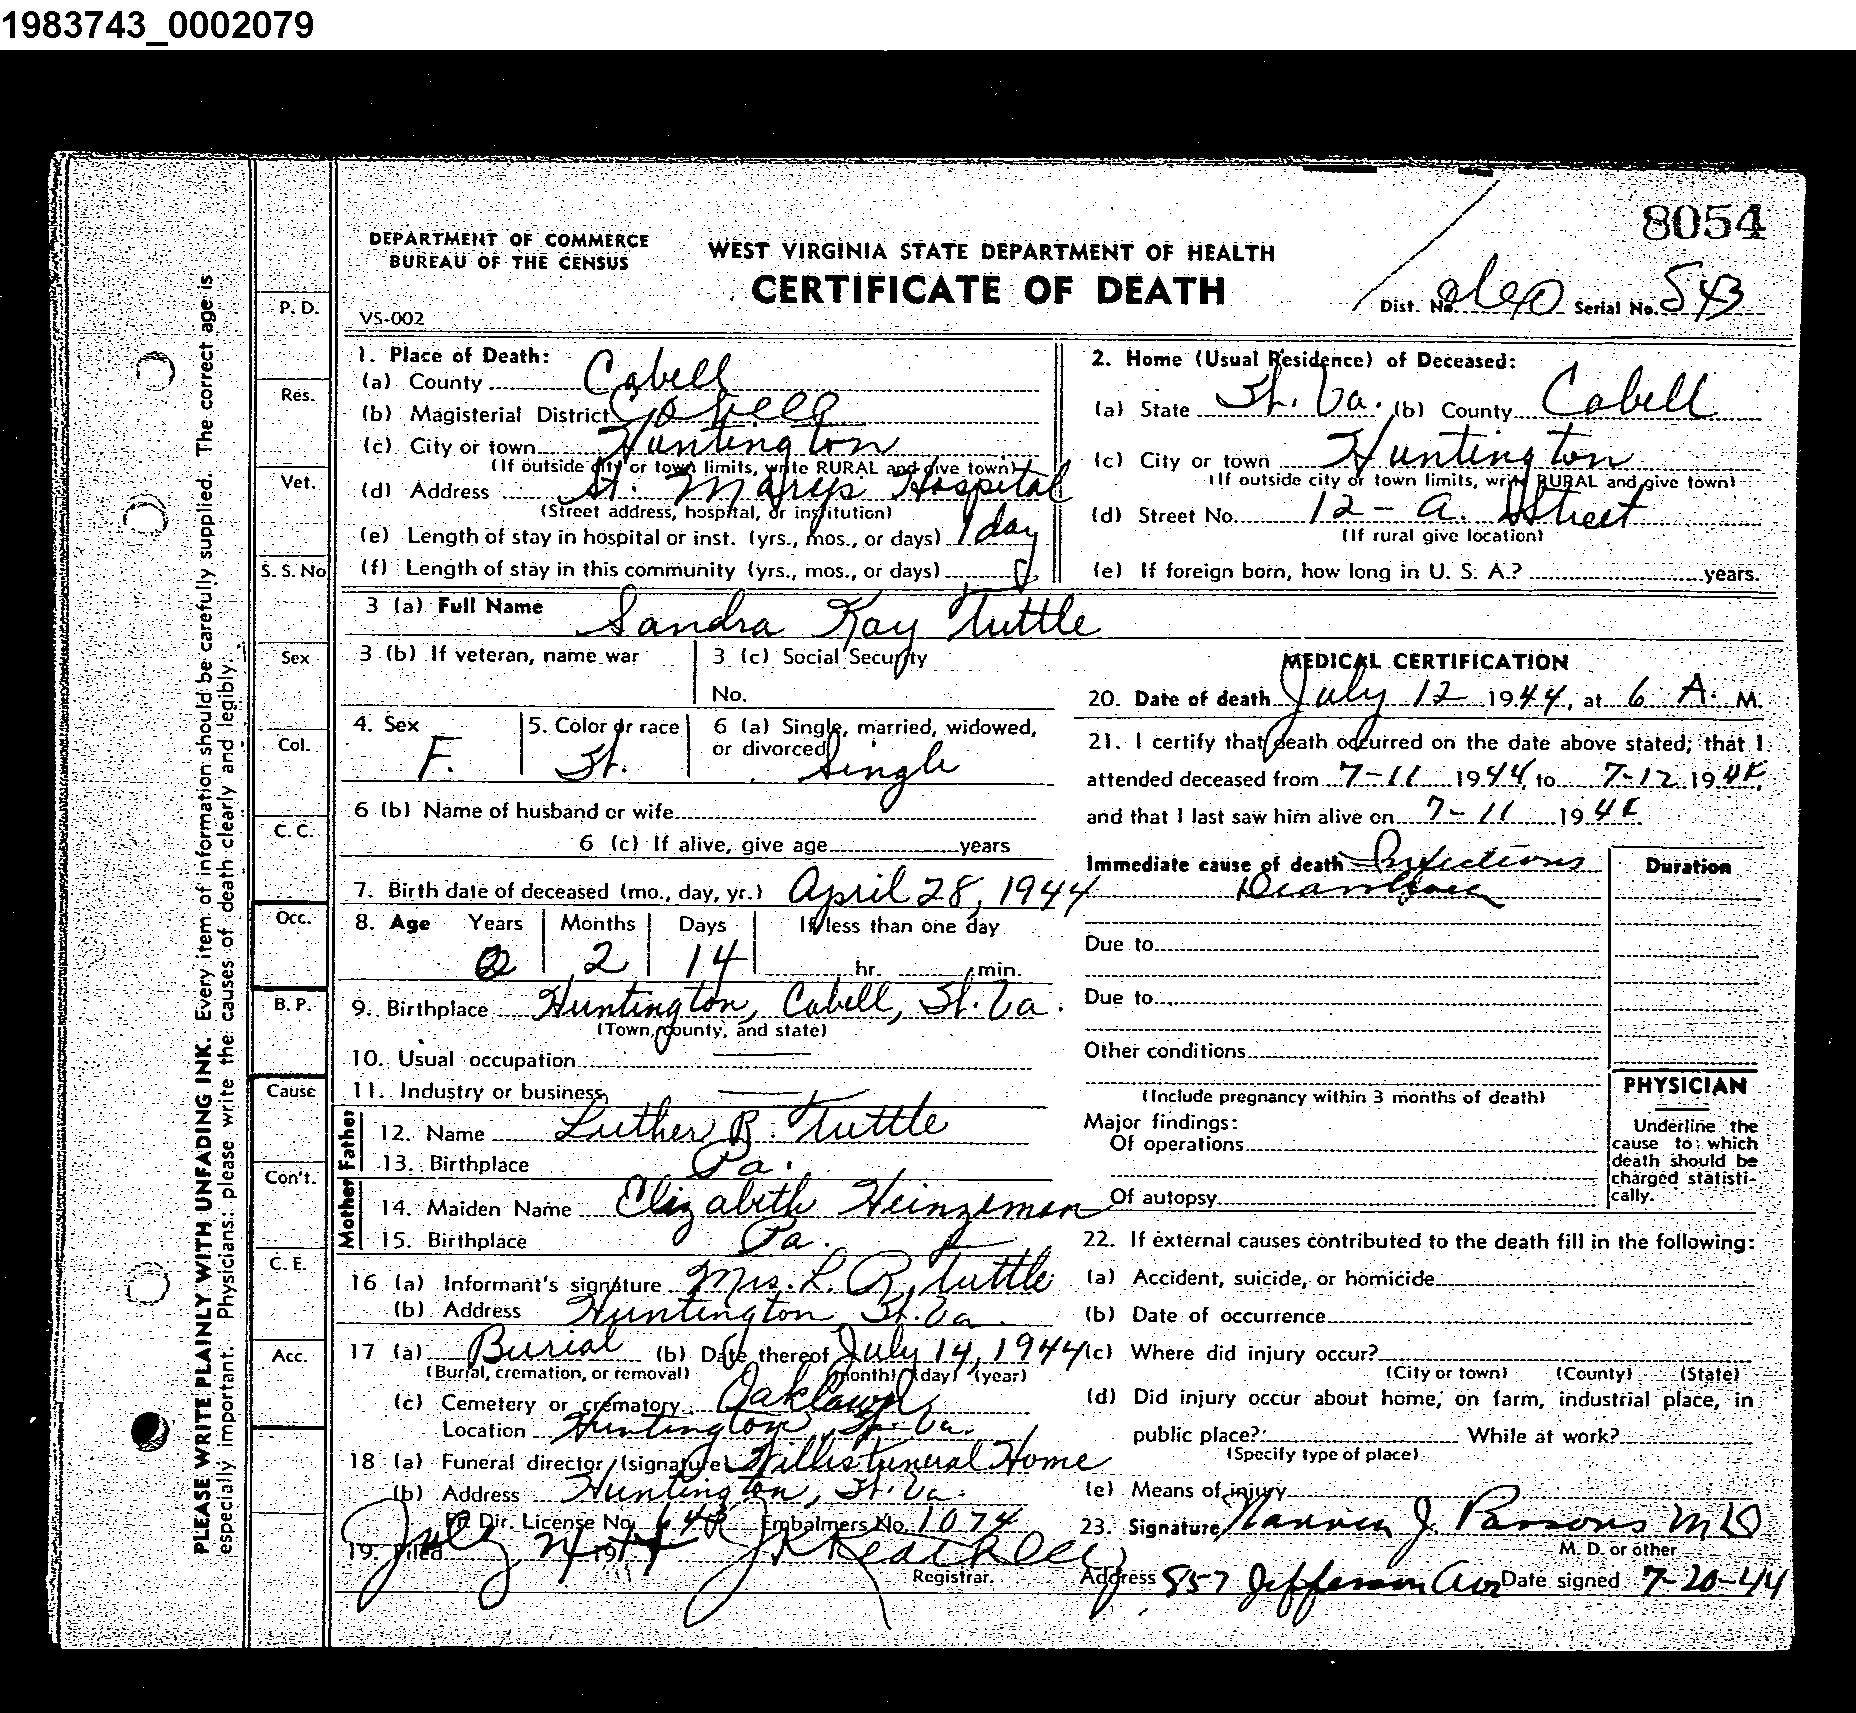 1983743_0002079
8054
DEPARTMENT OF COMMERCE
BUREAU OF THE CENSUS
WEST VIRGINIA STATE DEPARTMENT OF HEALTH
CERTIFICATE OF DEATH
VS-002
Dist. No. Serial No. 543
1. Place of Death:
(a) County Cabell
(b) Magisterial District
(c) City or town Huntington
(If outside city or town limits, write RURAL and give town)
(d) Address St. Marys Hospital
(Street address, hospital, or institution)
(e) Length of stay in hospital or inst. (yrs., mos., or days) 1 day
(f) Length of stay in this community (yrs., mos., or days)
2. Home (Usual Residence) of Deceased:
(a) State W. Va. (b) County Cabell
(c) City or town Huntington
(If outside city or town limits, write RURAL and give town)
(d) Street No. 12 - A. Street
(If rural give location)
(e) If foreign born, how long in U. S. A.? years.
3 (a) Full Name Sandra Kay Tuttle
3 (b) If veteran, name war
3 (c) Social Security
No.
4. Sex F.
5. Color or race W.
6 (a) Single, married, widowed,
or divorced Single
6 (b) Name of husband or wife
6 (c) If alive, give age years
7. Birth date of deceased (mo., day, yr.) April 28, 1944
8. Age Years Months Days If less than one day
0 2 14 hr. min.
9. Birthplace Huntington, Cabell, W. Va.
(Town, county, and state)
10. Usual occupation
11. Industry or business
Father
12. Name Luther R. Tuttle
13. Birthplace Pa.
Mother
14. Maiden Name Elizabeth Heinzeman
15. Birthplace Pa.
16 (a) Informant's signature Mrs. L. R. Tuttle
(b) Address Huntington W. Va.
17 (a) Burial (b) Date thereof July 14, 1944
(Burial, cremation, or removal) (month) (day) (year)
(c) Cemetery or crematory Oaklawn
Location Huntington, W. Va.
18 (a) Funeral director (signature) Funeral Home
(b) Address Huntington, W. Va.
Dir. License No. Embalmers No. 1074
19. Filed July 24 1944
Registrar.
MEDICAL CERTIFICATION
20. Date of death July 12 1944, at 6 A. M.
21. I certify that death occurred on the date above stated; that I
attended deceased from 7-11 1944, to 7-12 1944,
and that I last saw him alive on 7-11 1944
Immediate cause of death Infectious
Diarrhoea
Duration
Due to
Due to
Other conditions
(Include pregnancy within 3 months of death)
Major findings:
Of operations
Of autopsy
PHYSICIAN
Underline the
cause to which
death should be
charged statisti-
cally.
22. If external causes contributed to the death fill in the following:
(a) Accident, suicide, or homicide
(b) Date of occurrence
(c) Where did injury occur?
(City or town) (County) (State)
(d) Did injury occur about home, on farm, industrial place, in
public place? While at work?
(Specify type of place)
(e) Means of injury
23. Signature J. Parsons MD
M. D. or other
Address 857 Jefferson Ave Date signed 7-20-44
P. D.
Res.
Vet.
S. S. No
Sex
Col.
C. C.
Occ.
B. P.
Cause
Con't.
C. E.
Acc.
PLEASE WRITE PLAINLY WITH UNFADING INK. Every item of information should be carefully supplied. The correct age is
especially important. Physicians: please write the causes of death clearly and legibly.